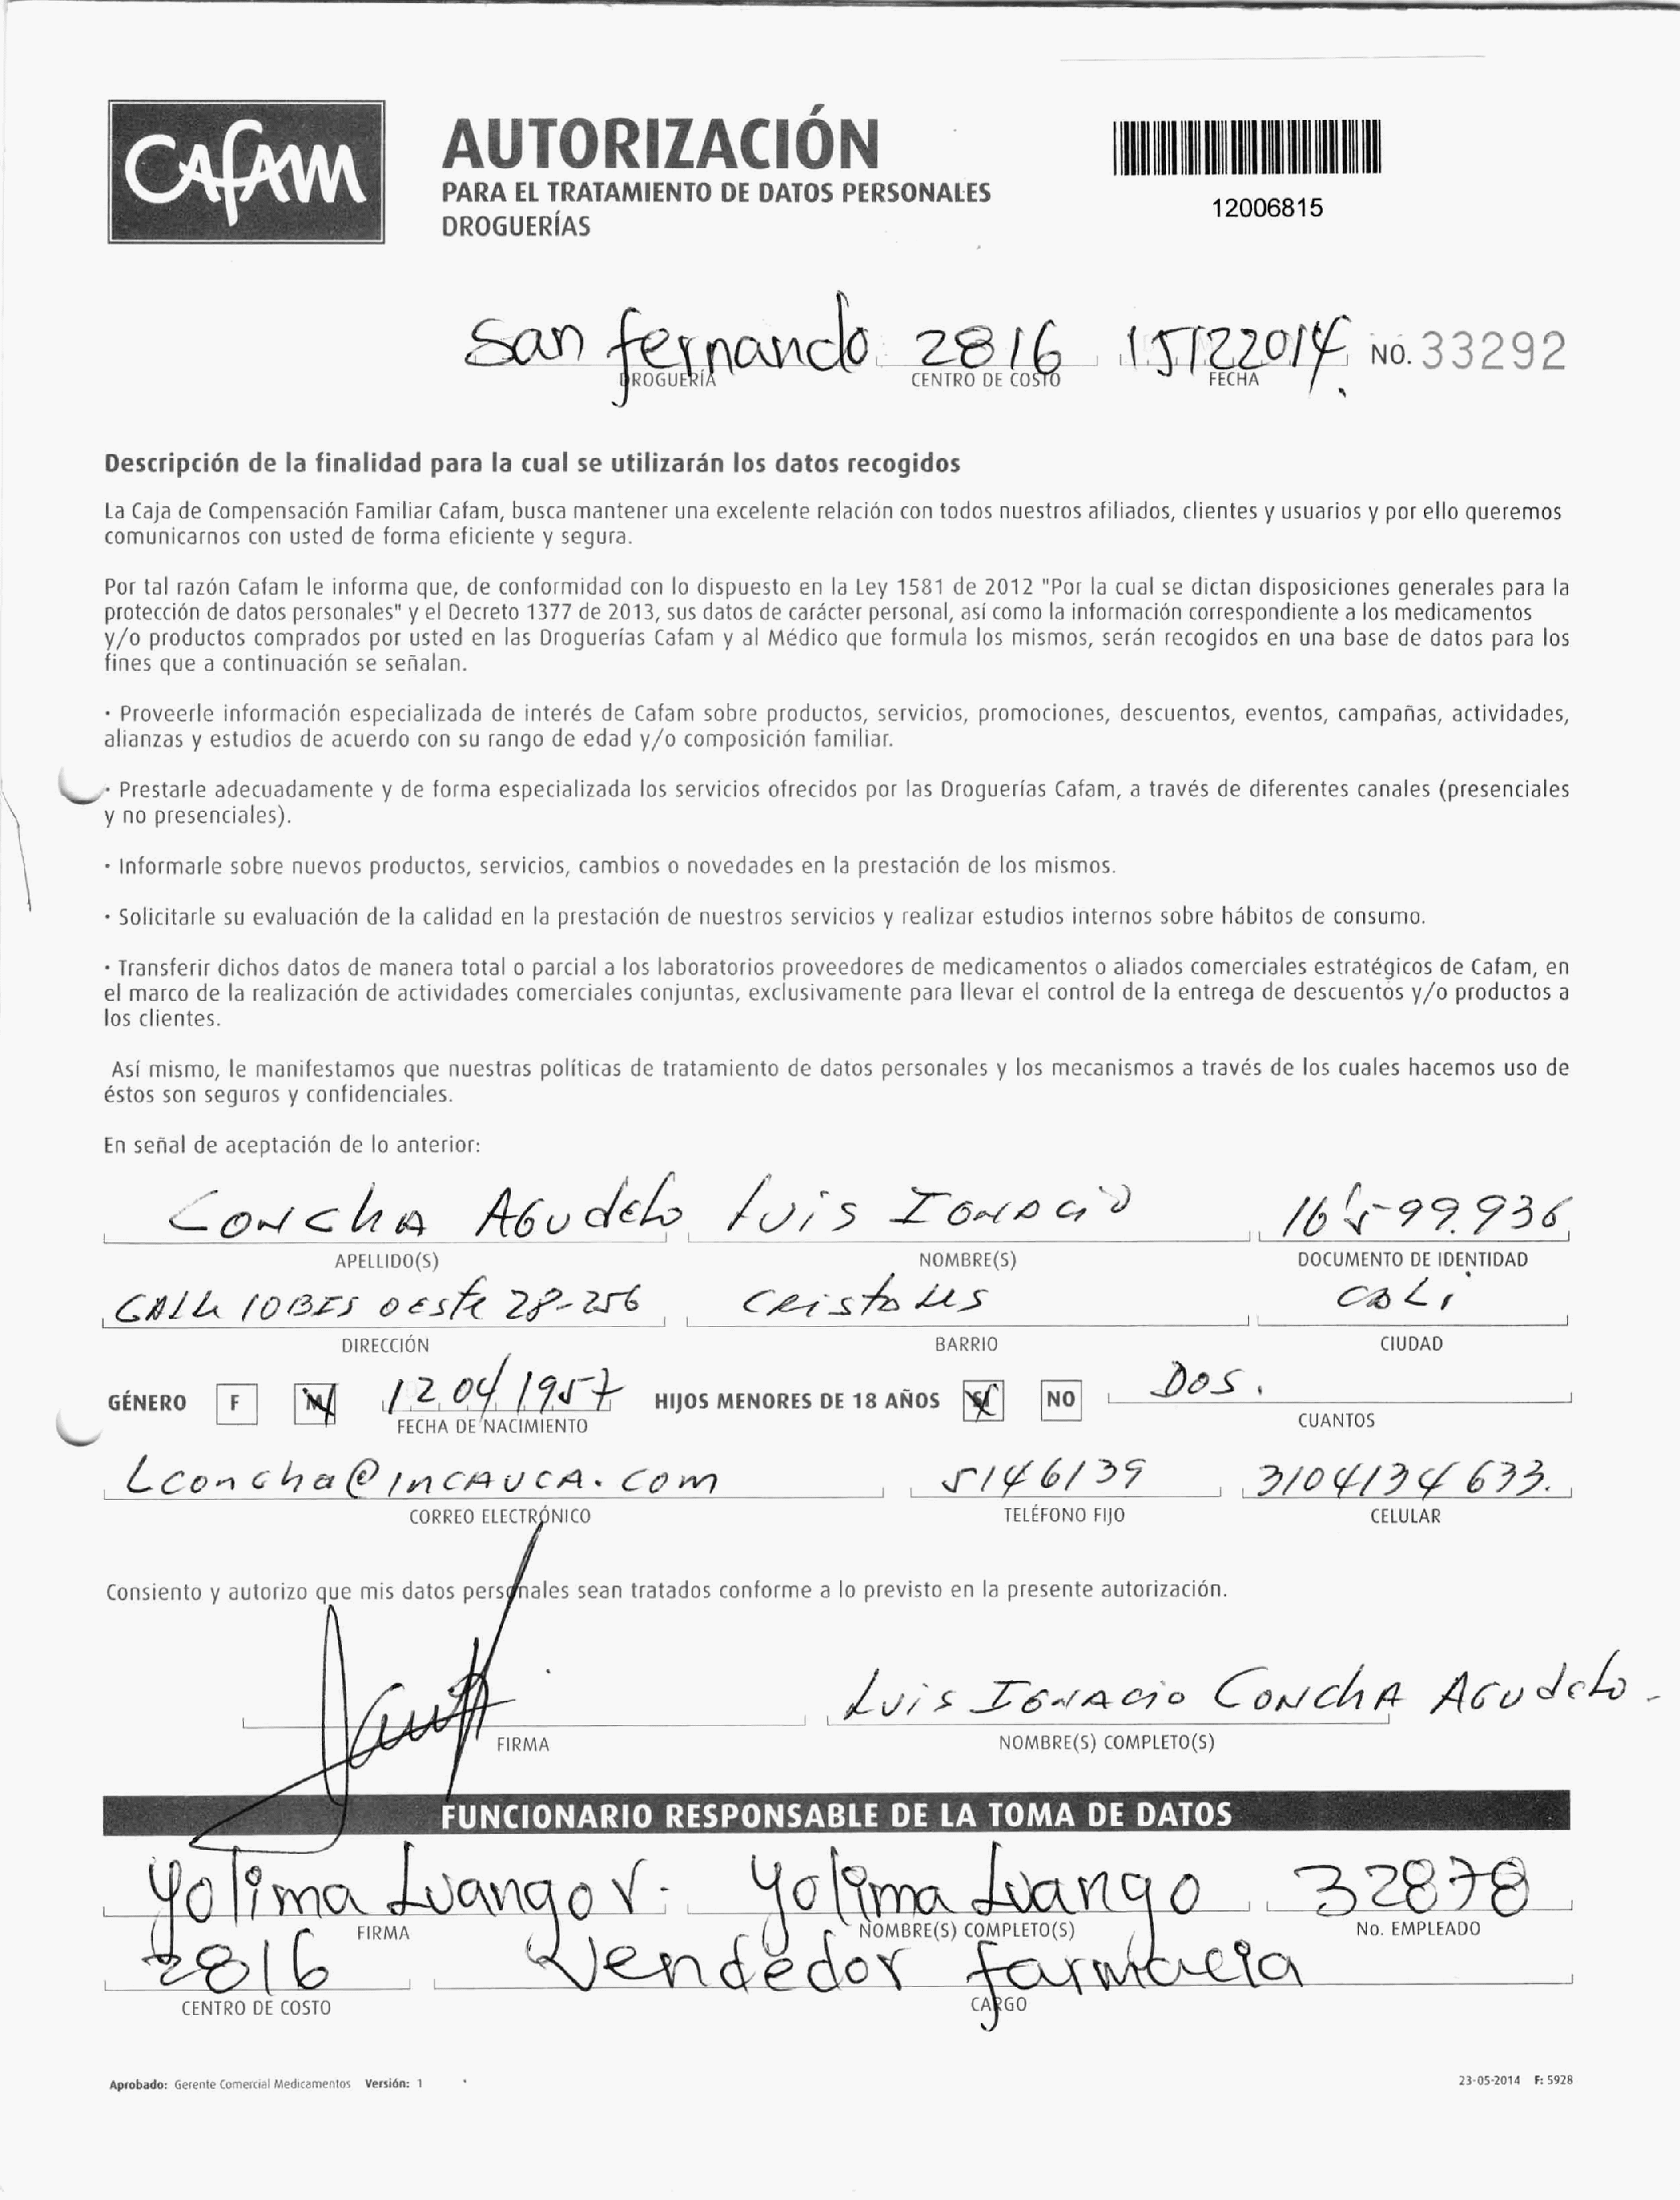 CAFAM
AUTORIZACIÓN
PARA EL TRATAMIENTO DE DATOS PERSONALES
DROGUERÍAS
12006815
San fernando 2816 15122014 NO. 33292
DROGUERÍA CENTRO DE COSTO FECHA
Descripción de la finalidad para la cual se utilizarán los datos recogidos
La Caja de Compensación Familiar Cafam, busca mantener una excelente relación con todos nuestros afiliados, clientes y usuarios y por ello queremos
comunicarnos con usted de forma eficiente y segura.
Por tal razón Cafam le informa que, de conformidad con lo dispuesto en la Ley 1581 de 2012 "Por la cual se dictan disposiciones generales para la
protección de datos personales" y el Decreto 1377 de 2013, sus datos de carácter personal, así como la información correspondiente a los medicamentos
y/o productos comprados por usted en las Droguerías Cafam y al Médico que formula los mismos, serán recogidos en una base de datos para los
fines que a continuación se señalan.
· Proveerle información especializada de interés de Cafam sobre productos, servicios, promociones, descuentos, eventos, campañas, actividades,
alianzas y estudios de acuerdo con su rango de edad y/o composición familiar.
· Prestarle adecuadamente y de forma especializada los servicios ofrecidos por las Droguerías Cafam, a través de diferentes canales (presenciales
y no presenciales).
· Informarle sobre nuevos productos, servicios, cambios o novedades en la prestación de los mismos.
· Solicitarle su evaluación de la calidad en la prestación de nuestros servicios y realizar estudios internos sobre hábitos de consumo.
· Transferir dichos datos de manera total o parcial a los laboratorios proveedores de medicamentos o aliados comerciales estratégicos de Cafam, en
el marco de la realización de actividades comerciales conjuntas, exclusivamente para llevar el control de la entrega de descuentos y/o productos a
los clientes.
Así mismo, le manifestamos que nuestras políticas de tratamiento de datos personales y los mecanismos a través de los cuales hacemos uso de
éstos son seguros y confidenciales.
En señal de aceptación de lo anterior:
Concha Agudelo Luis Ignacio 16'599.936
APELLIDO(S) NOMBRE(S) DOCUMENTO DE IDENTIDAD
Calle 10BIS oeste 28-256 Cristales Cali
DIRECCIÓN BARRIO CIUDAD
GÉNERO F M 12 04 1957 HIJOS MENORES DE 18 AÑOS SI NO Dos.
FECHA DE NACIMIENTO CUANTOS
Lconcha@incauca.com 5146139 3104134633.
CORREO ELECTRÓNICO TELÉFONO FIJO CELULAR
Consiento y autorizo que mis datos personales sean tratados conforme a lo previsto en la presente autorización.
Luis Ignacio Concha Agudelo.
FIRMA NOMBRE(S) COMPLETO(S)
FUNCIONARIO RESPONSABLE DE LA TOMA DE DATOS
Yolima Luango V. Yolima Luango 32878
FIRMA NOMBRE(S) COMPLETO(S) No. EMPLEADO
2816 Vendedor farmacia
CENTRO DE COSTO CARGO
Aprobado: Gerente Comercial Medicamentos Versión: 1 23-05-2014 F: 5928